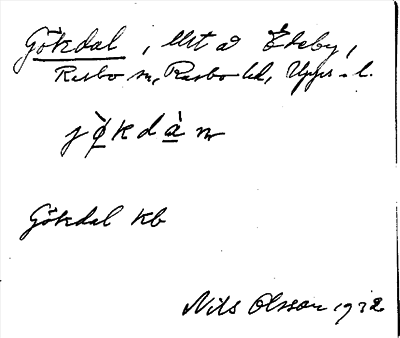 Gökdal, llt å Edeby,
Rasbo sn, Rasbo hd, Upps. l.
jö̀kdàn
Gökdal kb
Nils Olsson 1932